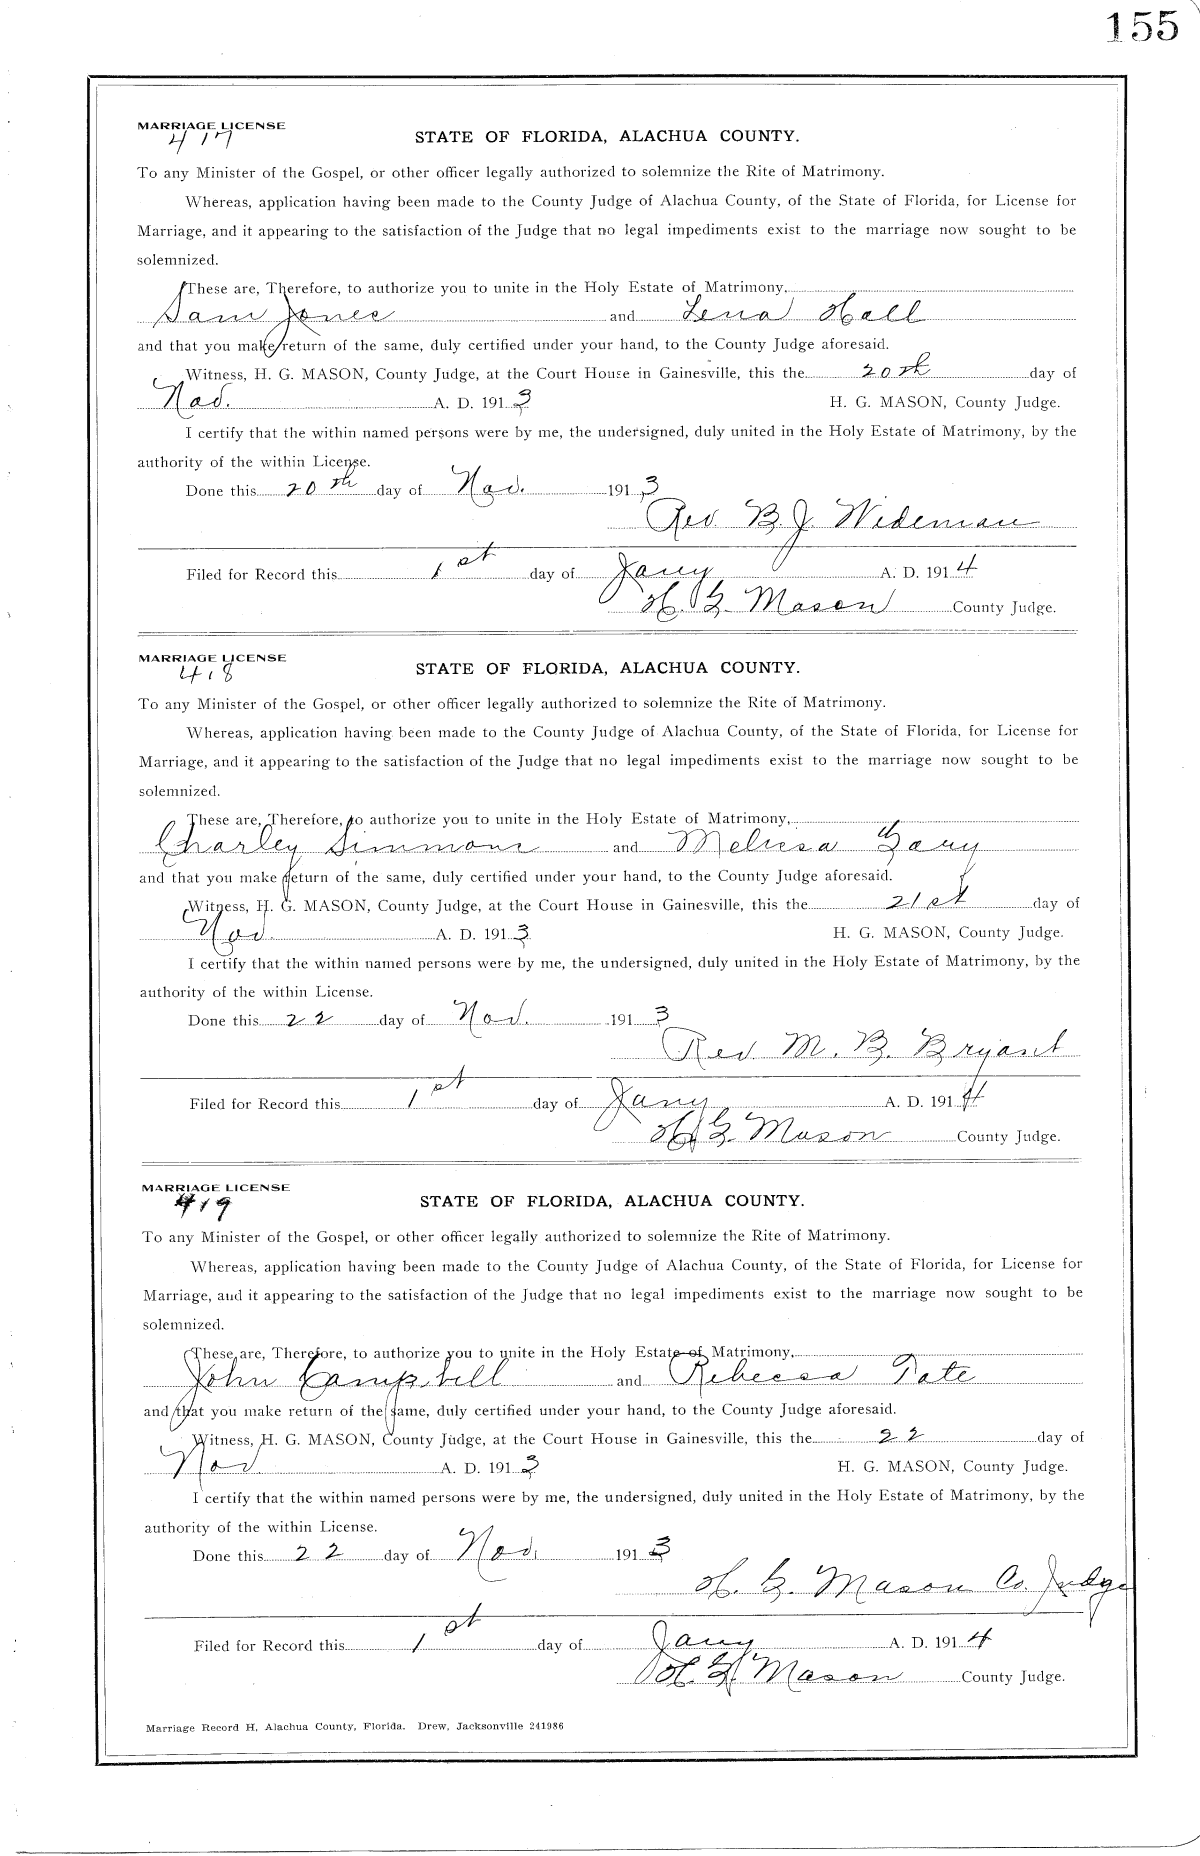 155
MARRIAGE LICENSE
417
STATE OF FLORIDA, ALACHUA COUNTY.
To any Minister of the Gospel, or other officer legally authorized to solemnize the Rite of Matrimony.
Whereas, application having been made to the County Judge of Alachua County, of the State of Florida, for License for
Marriage, and it appearing to the satisfaction of the Judge that no legal impediments exist to the marriage now sought to be
solemnized.
These are, Therefore, to authorize you to unite in the Holy Estate of Matrimony,
Sam Jones and Lena Hall
and that you make return of the same, duly certified under your hand, to the County Judge aforesaid.
Witness, H. G. MASON, County Judge, at the Court House in Gainesville, this the 20th day of
Nov. A. D. 1913 H. G. MASON, County Judge.
I certify that the within named persons were by me, the undersigned, duly united in the Holy Estate of Matrimony, by the
authority of the within License.
Done this 20th day of Nov. 1913
Rev. B. J. Wideman
Filed for Record this 1st day of Jany A. D. 1914
H. G. Mason County Judge.
MARRIAGE LICENSE
418
STATE OF FLORIDA, ALACHUA COUNTY.
To any Minister of the Gospel, or other officer legally authorized to solemnize the Rite of Matrimony.
Whereas, application having been made to the County Judge of Alachua County, of the State of Florida, for License for
Marriage, and it appearing to the satisfaction of the Judge that no legal impediments exist to the marriage now sought to be
solemnized.
These are, Therefore, to authorize you to unite in the Holy Estate of Matrimony,
Charley Simmons and Melissa Gary
and that you make return of the same, duly certified under your hand, to the County Judge aforesaid.
Witness, H. G. MASON, County Judge, at the Court House in Gainesville, this the 21st day of
Nov. A. D. 1913 H. G. MASON, County Judge.
I certify that the within named persons were by me, the undersigned, duly united in the Holy Estate of Matrimony, by the
authority of the within License.
Done this 22 day of Nov. 1913
Rev. M. B. Bryant
Filed for Record this 1st day of Jany A. D. 1914
H. G. Mason County Judge.
MARRIAGE LICENSE
419
STATE OF FLORIDA, ALACHUA COUNTY.
To any Minister of the Gospel, or other officer legally authorized to solemnize the Rite of Matrimony.
Whereas, application having been made to the County Judge of Alachua County, of the State of Florida, for License for
Marriage, and it appearing to the satisfaction of the Judge that no legal impediments exist to the marriage now sought to be
solemnized.
These are, Therefore, to authorize you to unite in the Holy Estate of Matrimony,
John Campbell and Rebecca Tate
and that you make return of the same, duly certified under your hand, to the County Judge aforesaid.
Witness, H. G. MASON, County Judge, at the Court House in Gainesville, this the 22 day of
Nov A. D. 1913 H. G. MASON, County Judge.
I certify that the within named persons were by me, the undersigned, duly united in the Holy Estate of Matrimony, by the
authority of the within License.
Done this 22 day of Nov. 1913
H. G. Mason Co. Judge
Filed for Record this 1st day of Jany A. D. 1914
H. G. Mason County Judge.
Marriage Record H, Alachua County, Florida. Drew, Jacksonville 241986